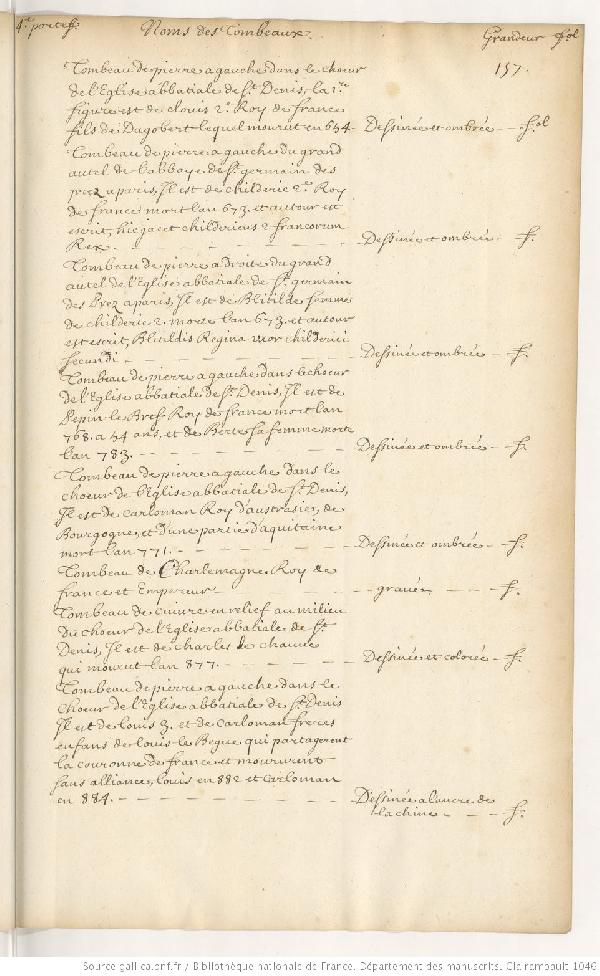 4e. portef. Noms des Tombeaux. Grandeur fol
157.
Tombeau de pierre a gauche dans le choeur
de l'Eglise abbatiale de St. Denis, la 1re
figure est de clouis 2e. Roy de france
fils de Dagobert lequel mourut en 654. Dessinée et ombrée - - fol
Tombeau de pierre a gauche du grand
autel de l'abbaye de St. germain des
prez a paris, Jl est de childeric 2e. Roy
de france mort lan 673. et autour est
escrit, hic jacet childericus 2 francorum
Rex. - - - Dessinée et ombrée - f.
Tombeau de pierre a droite du grand
autel de l'Eglise abbatiale de St. germain
des Prez a paris, Jl est de Blitilde femme
de childeric 2. morte lan 673. et autour
est escrit, Blitildis Regina uxor childerici
secundi - - - Dessinée et ombrée - f.
Tombeau de pierre a gauche dans le choeur
de l'Eglise abbatiale de St. Denis, Jl est de
Pepin le Bref Roy de france mort lan
768. a 54 ans, et de Berte sa femme morte
lan 783. - - - Dessinée et ombrée - f.
Tombeau de pierre a gauche dans le
choeur de l'Eglise abbatiale de St. Denis,
Jl est de carloman Roy d'austrasie, de
Bourgogne, et d'une partie d'aquitaine
mort lan 771. - - - Dessinée et ombrée - f.
Tombeau de Charlemagne Roy de
france et Empereur - - gravée - - f.
Tombeau de cuivre en relief au milieu
du choeur de l'Eglise abbatiale de St.
Denis, Jl est de charles le chauue
qui mourut lan 877. - - - Dessinée et colorée - f.
Tombeau de pierre a gauche dans le
choeur de l'Eglise abbatiale de St. Denis
Jl est de louis 3. et de carloman freres
enfans de louis le Begue qui partagerent
la couronne de france et moururent
sans alliance, louis en 882 et carloman
en 884. - - - Dessinée a l'ancre de
la chine - - - f.
Source gallica.bnf.fr / Bibliothèque nationale de France. Département des manuscrits. Clairambault 1046